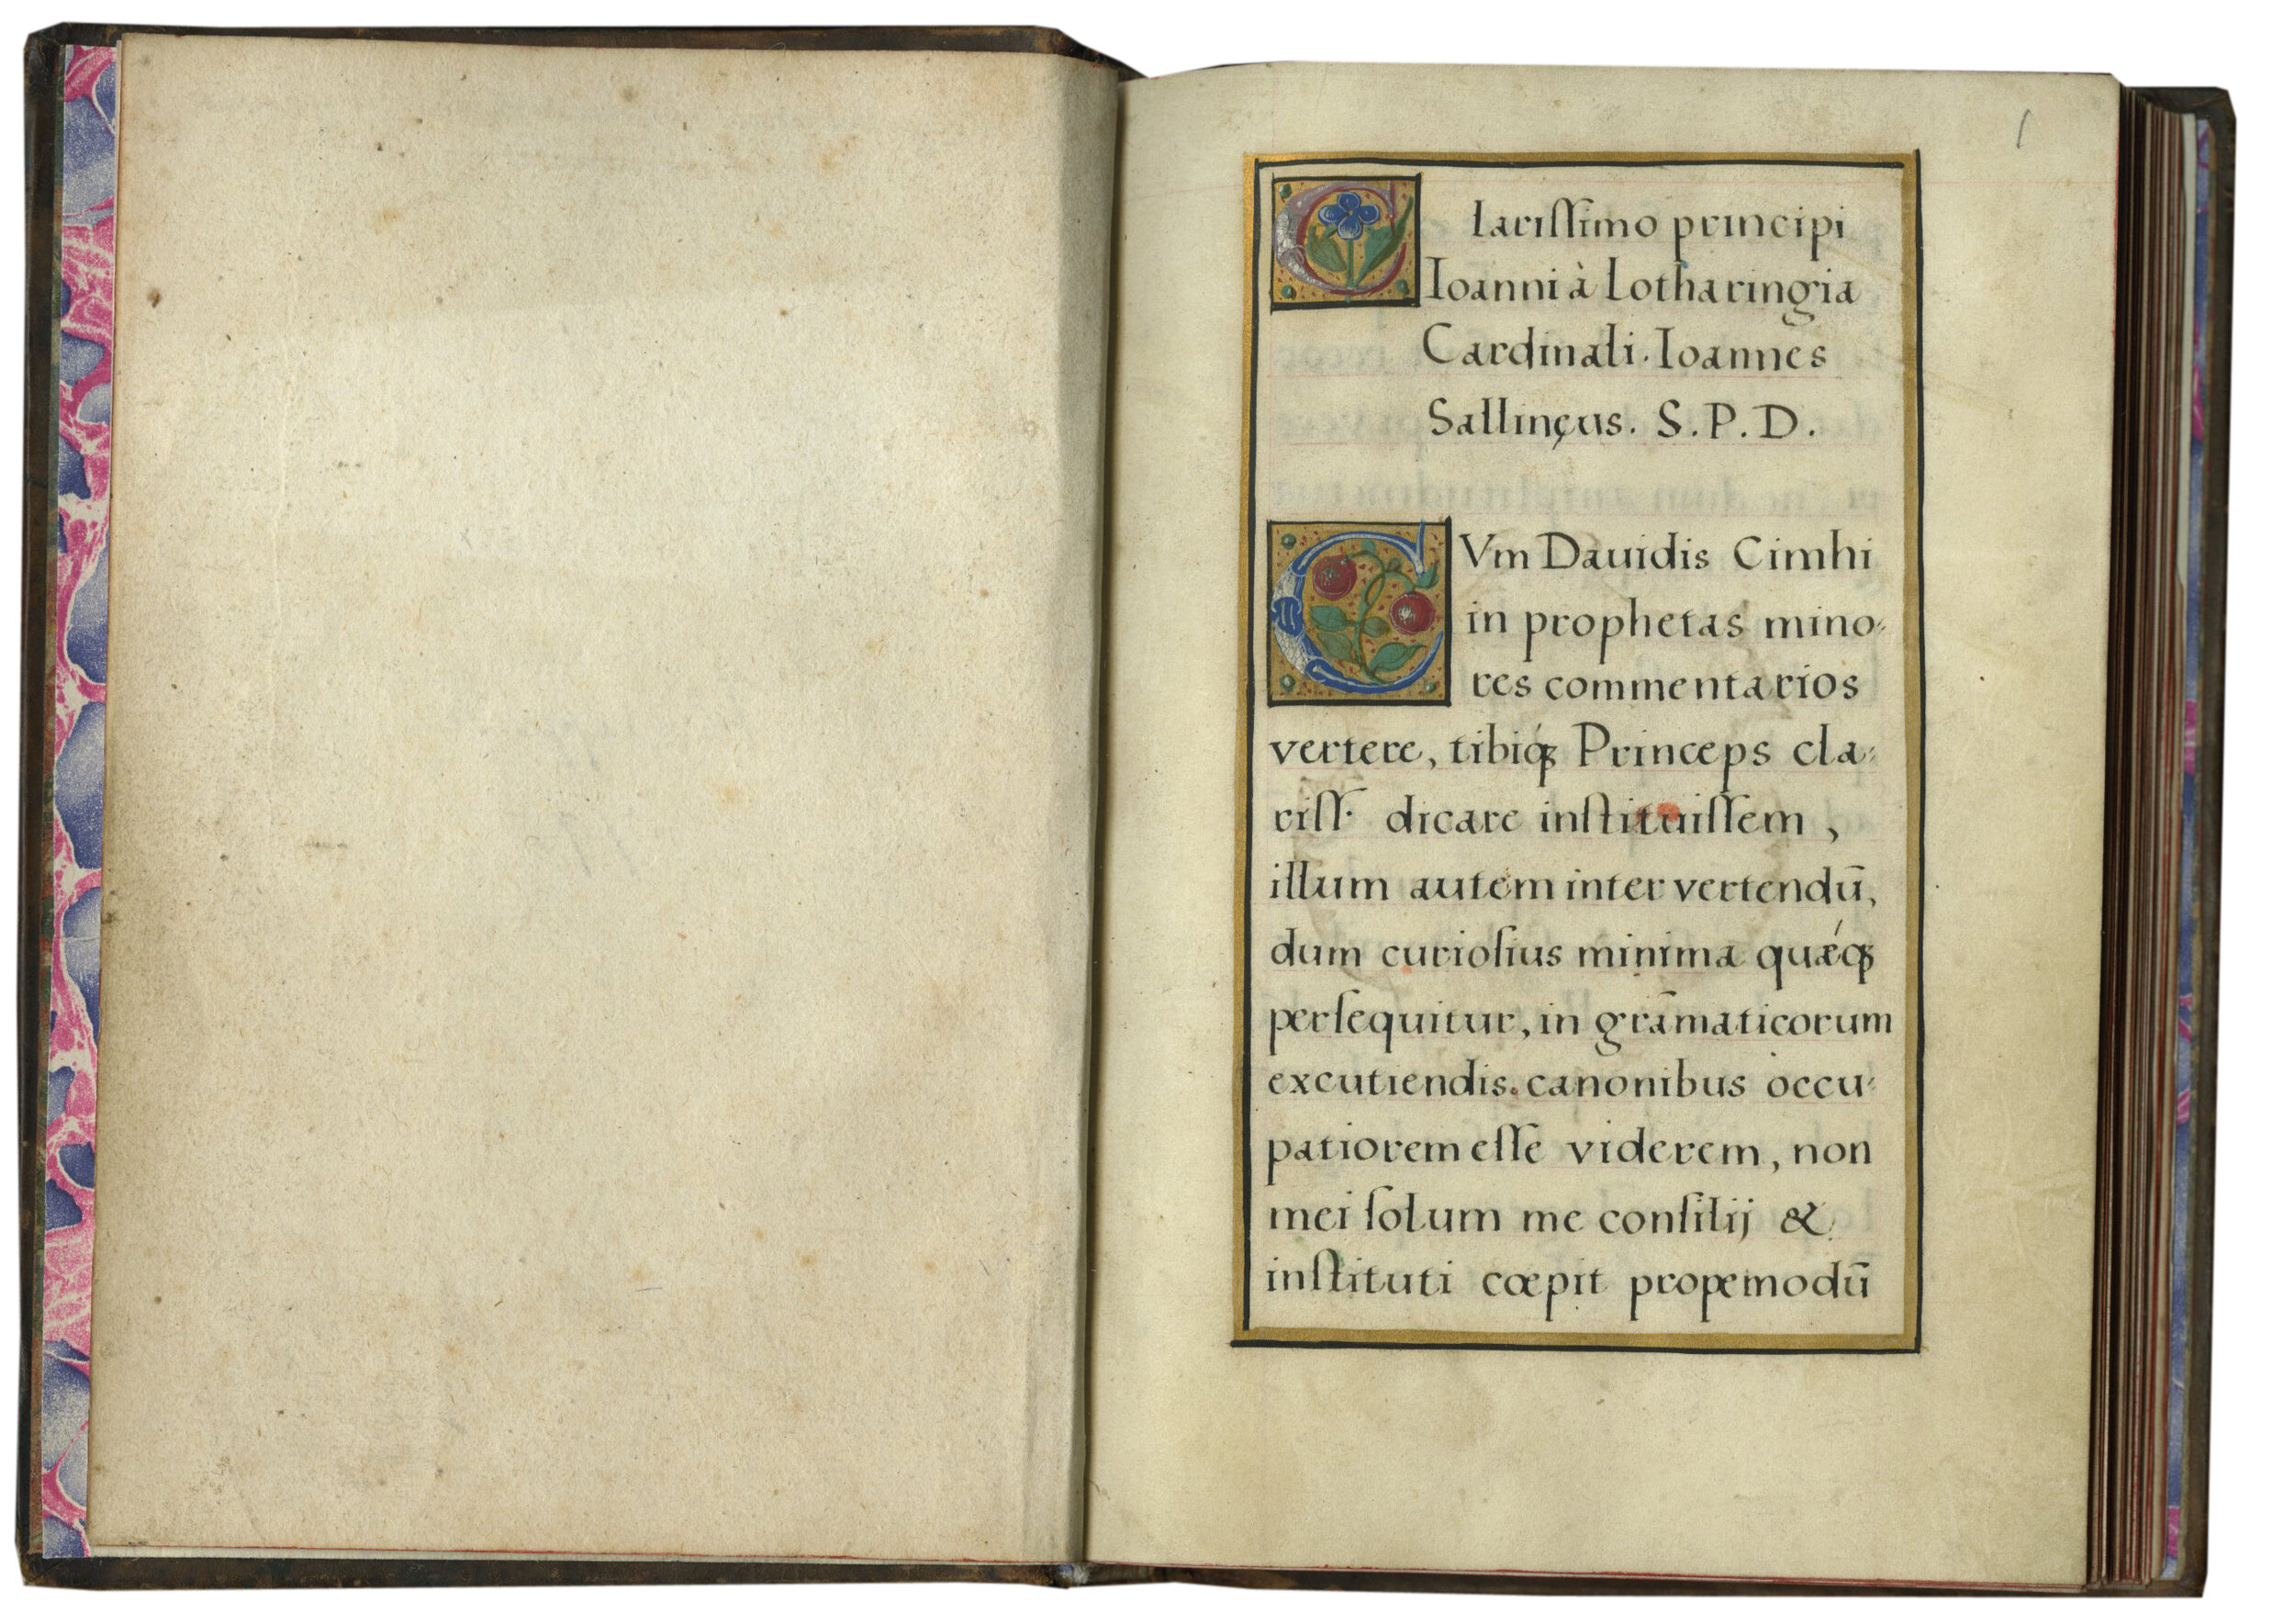 1
Clarissimo principi
Ioanni à Lotharingia
Cardinali. Ioannes
Sallinęus. S. P. D.
CVm Dauidis Cimhi
in prophetas mino-
res commentarios
vertere, tibiq́ꝫ Princeps cla-
riſſ. dicare inſtituiſſem,
illum autem inter vertendū,
dum curioſius minima quæq́ꝫ
perſequitur, in grāmaticorum
excutiendis canonibus occu-
patiorem eſſe viderem, non
mei ſolum me conſilij &
inſtituti cœpit propemodū